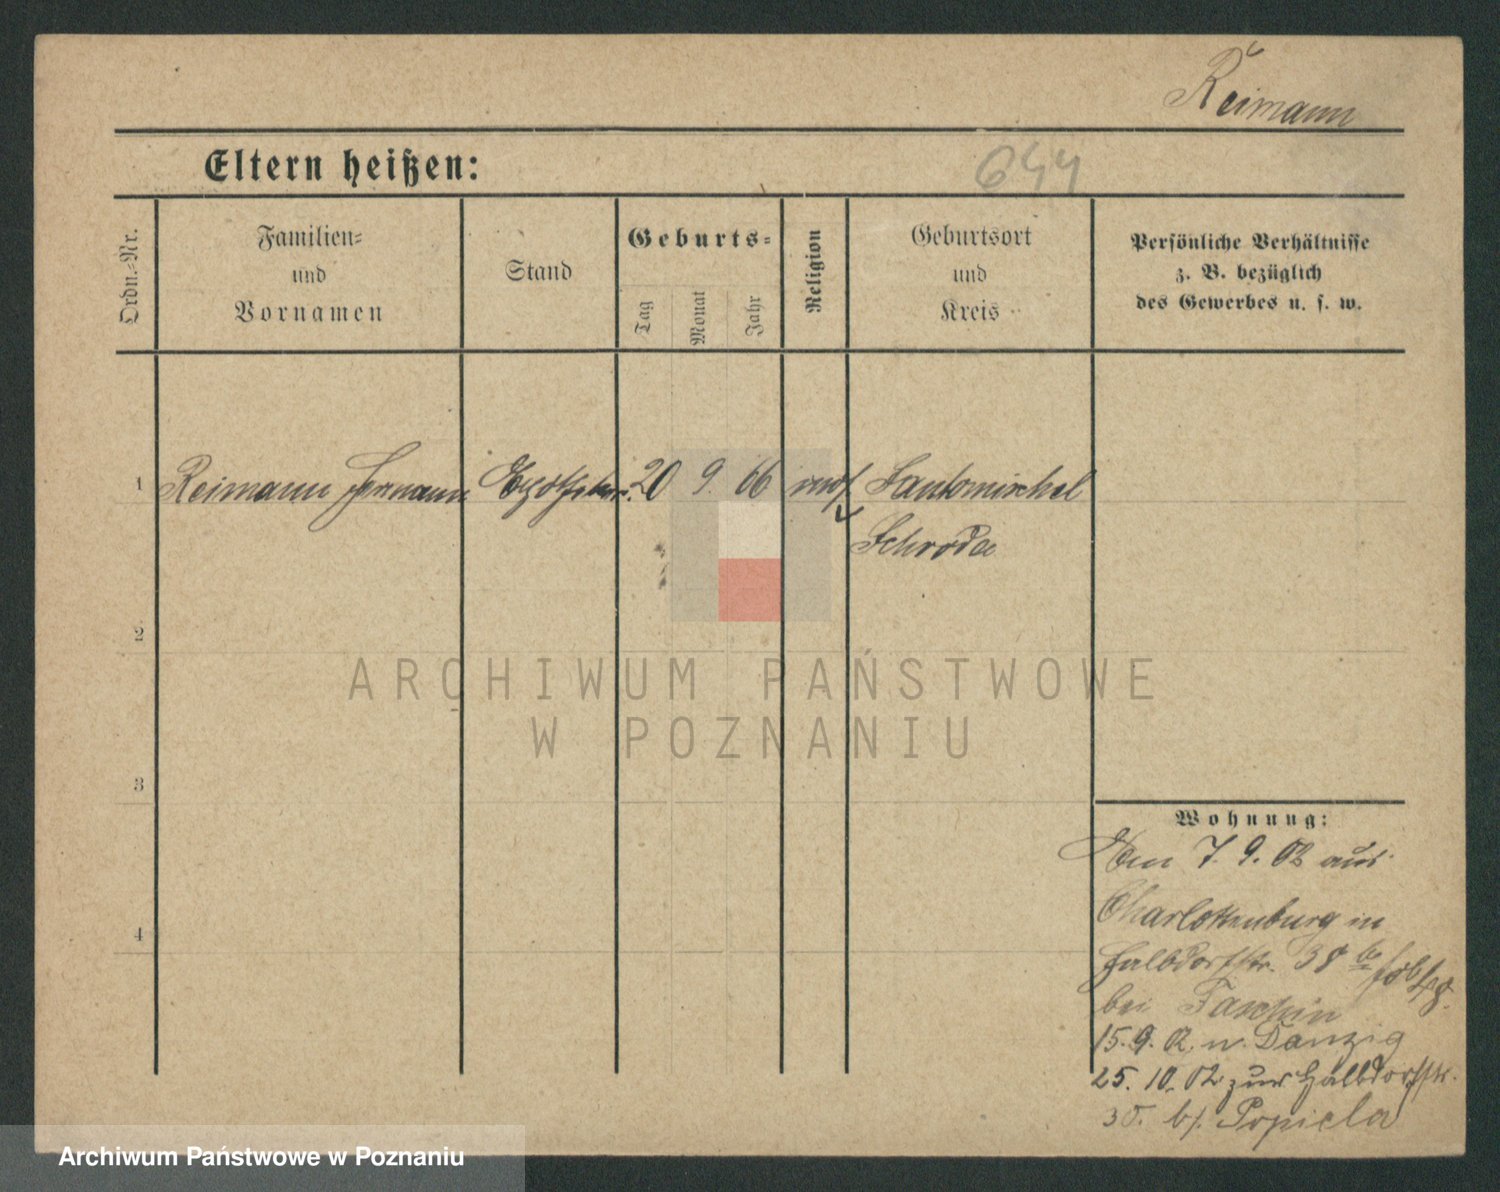 Reimann
Eltern heißen:
644
Ordn.-Nr.
Familien-
und
Vornamen
Stand
Geburts-
Tag
Monat
Jahr
Religion
Geburtsort
und
Kreis
Persönliche Verhältnisse
z. B. bezüglich
des Gewerbes u. s. w.
1 Reimann Hermann 20 9. 66 Santomischel
Schroda
2
3
4
Wohnung:
Den 7. 9. 02 aus
Charlottenburg in
Halbdorfstr.
bei
15. 9. 02 n. Danzig
25. 10. 02 zur Halbdorfstr.
30. b/. Popiela
ARCHIWUM PAŃSTWOWE
W POZNANIU
Archiwum Państwowe w Poznaniu